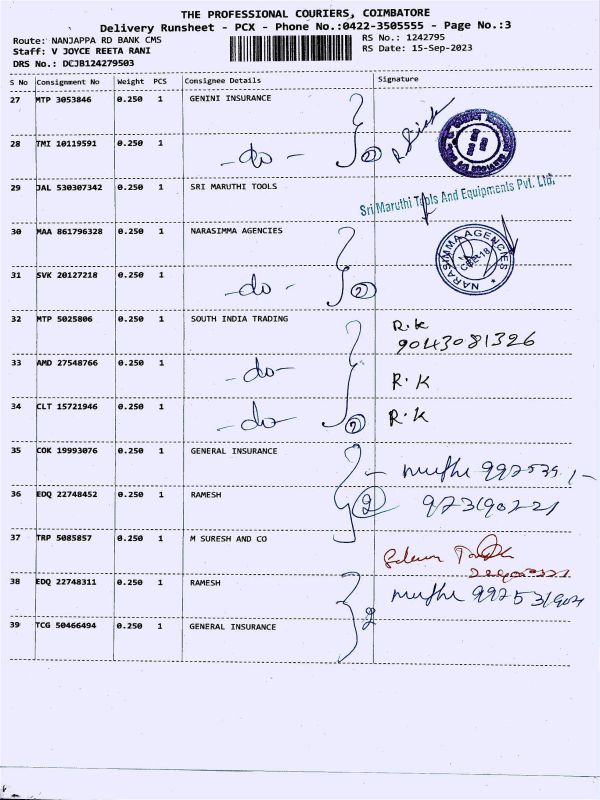 THE PROFESSIONAL COURIERS, COIMBATORE
Delivery Runsheet - PCX - Phone No.:0422-3505555 - Page No.:3
Route: NANJAPPA RD BANK CMS RS No.: 1242795
Staff: V JOYCE REETA RANI RS Date: 15-Sep-2023
DRS No.: DCJB124279503
S No Consignment No Weight PCS Consignee Details Signature
27 MTP 3053846 0.250 1 GENINI INSURANCE
28 TMI 10119591 0.250 1 -do- 2
29 JAL 530307342 0.250 1 SRI MARUTHI TOOLS
Sri Maruthi Tools And Equipments Pvt. Ltd.
30 MAA 861796328 0.250 1 NARASIMMA AGENCIES
NARASIMMA AGENCIES
31 SVK 20127218 0.250 1 -do- 2
32 MTP 5025806 0.250 1 SOUTH INDIA TRADING R.K
9043081326
33 AMD 27548766 0.250 1 -do- R.K
34 CLT 15721946 0.250 1 -do- R.K
35 COK 19993076 0.250 1 GENERAL INSURANCE
36 EDQ 22748452 0.250 1 RAMESH 2
37 TRP 5085857 0.250 1 M SURESH AND CO
38 EDQ 22748311 0.250 1 RAMESH 2
39 TCG 50466494 0.250 1 GENERAL INSURANCE